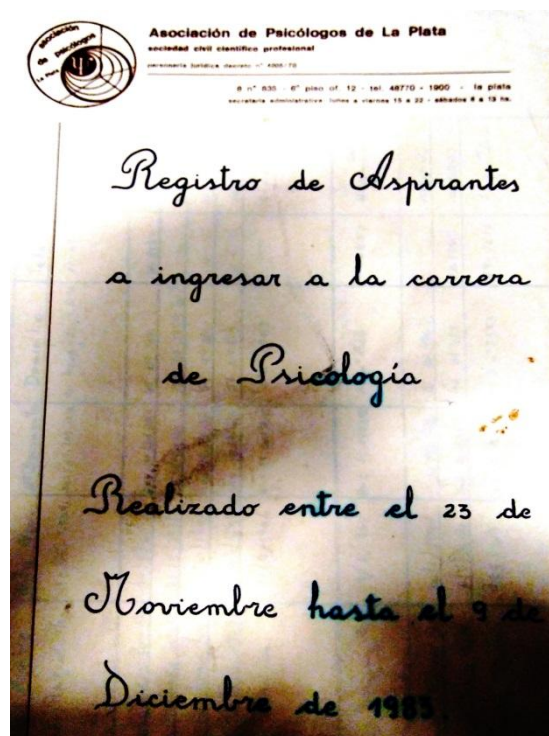 asociación
de psicólogos
La Plata
Asociación de Psicólogos de La Plata
sociedad civil científico profesional
personería jurídica decreto n° 4005/70
8 n° 835 - 6° piso of. 12 - tel. 48770 - 1900 - la plata
secretaría administrativa: lunes a viernes 15 a 22 - sábados 8 a 13 hs.
Registro de Aspirantes
a ingresar a la carrera
de Psicología
Realizado entre el 23 de
Noviembre hasta el 9 de
Diciembre de 1983.